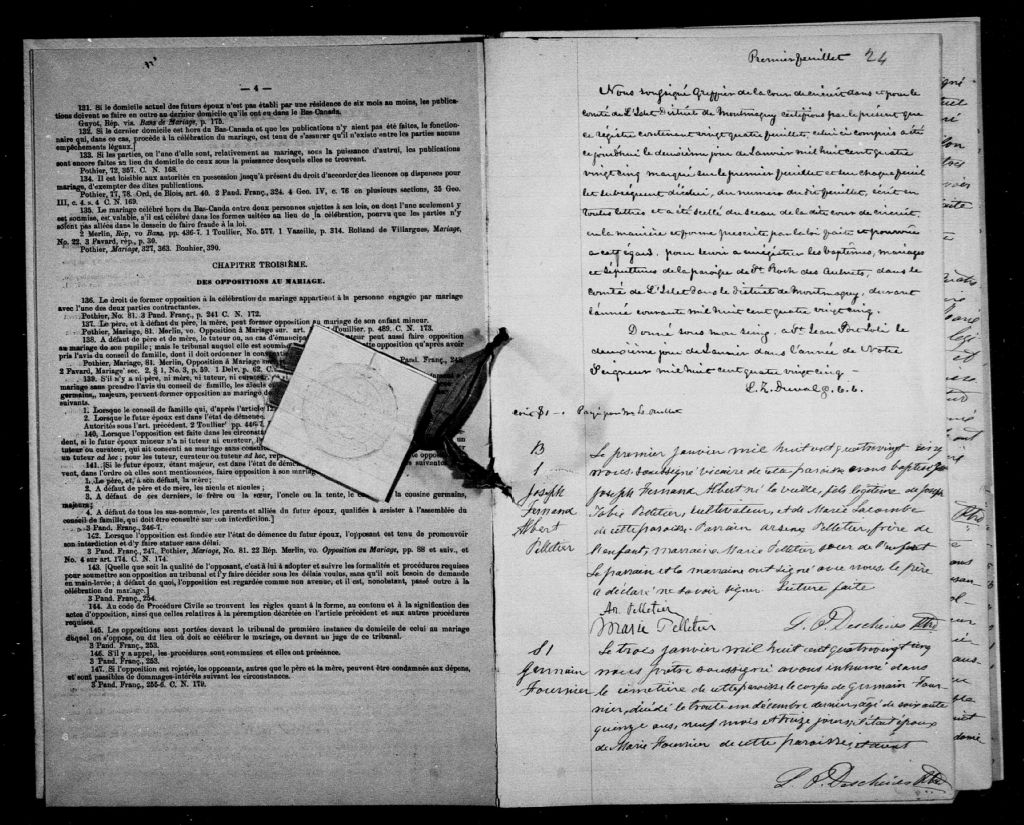 — 4 —
131. Si le domicile actuel des futurs époux n'est pas établi par une résidence de six mois au moins, les publica-
tions doivent se faire en outre au dernier domicile qu'ils ont eu dans le Bas-Canada.
Guyot, Rép. vis. Bans de Mariage, p. 175.
132. Si le dernier domicile est hors du Bas-Canada et que les publications n'y aient pas été faites, le fonction-
naire qui, dans ce cas, procède à la célébration du mariage, est tenu de s'assurer qu'il n'existe entre les parties aucuns
empêchements légaux.]
133. Si les parties, ou l'une d'elle sont, relativement au mariage, sous la puissance d'autrui, les publications
sont encore faites au lieu du domicile de ceux sous la puissance desquels elles se trouvent.
Pothier, 72, 357. C. N. 168.
134. Il est loisible aux autorités en possession jusqu'à présent du droit d'accorder des licences ou dispenses pour
mariage, d'exempter des dites publications.
Pothier, 77, 78. Ord. de Blois, art. 40. 2 Pand. Franç., 324. 4 Geo. IV, c. 76 en plusieurs sections, 35 Geo.
III, c. 4. s. 4 C. N. 169.
135. Le mariage célébré hors du Bas-Canda entre deux personnes sujettes à ses lois, ou dont l'une seulement y
est soumise, est valable, s'il est célébré dans les formes usitées au lieu de la célébration, pourvu que les parties n'y
soient pas allées dans le dessein de faire fraude à la loi.
2 Merlin, Rép, vo Bans. pp. 436-7. 1 Toullier, No. 577. 1 Vazeille, p. 314. Rolland de Villargues, Mariage,
No. 22. 3 Favard, rép., p. 39.
Pothier, Mariage, 327, 363. Bouhier, 390.
CHAPITRE TROISIÈME.
DES OPPOSITIONS AU MARIAGE.
136. Le droit de former opposition à la célébration du mariage appartient à la personne engagée par mariage
avec l'une des deux parties contractantes.
Pothier, No. 81. 3 Pand. Franç., p. 241 C. N. 172.
137. Le père, et à défaut du père, la mère, peut former opposition au mariage de son enfant mineur.
Pothier, Mariage, 81. Merlin, vo. Opposition à Mariage sur. art. Toullier. p. 489. C. N. 173.
138. A défaut de père et de mère, le tuteur ou, au cas d'émancip teur peut aussi faire opposition
au mariage de son pupille; mais le tribunal auquel elle est soumise opposition qu'après avoir
pris l'avis du conseil de famille, dont il doit ordonner la
Pothier, Mariage, 81. Merlin, Opposition à Mariage Pand. Franç., 243
2 Favard, Mariage sec. 2. § 1, No. 3, p. 59. 1 Delv. p. 62. C.
139. S'il n'y a ni père, ni mère, ni tuteur, ni
mariage sans prendre l'avis du conseil de famille, les aïeuls
germains, majeurs, peuvent former opposition au mariage
suivants.
1. Lorsque le conseil de famille qui, d'après l'article 12
2. Lorsque le futur époux est dans l'état de démence
Autorités sous l'art. précédent. 2 Toullier pp. 446-7.
140. Lorsque l'opposition est faite dans les
dent, si le futur époux mineur n'a ni tuteur ni curateur,
tuteur ou curateur, qui ait consenti au mariage sans
un tuteur ad hoc; pour les tuteur, curateur ou tuteur ad hoc,
141. [Si le futur époux, étant majeur, est dans l'état de suivantes
vent, dans l'ordre où elles sont mentionnées, faire opposition à son
1. Le père, et, à son défaut, la mère;
2. A défaut de père et de mère, les aïeuls et aïeules;
3. A défaut de ces derniers, le frère ou la sœur, l'oncle ou la tante, le la cousine germains,
majeurs;
4. A défaut de tous les sus-nommés, les parents et alliés du futur époux, qualifiés à assister à l'assemblée du
conseil de famille, qui doit être consulté sur son interdiction.]
3 Pand. Franç., 246-7.
142. Lorsque l'opposition est fondée sur l'état de démence du futur époux, l'opposant est tenu de promouvoir
son interdiction et d'y faire statuer sans délai.
3 Pand. Franç., 247. Pothier, Mariage, No. 81. 22 Rép. Merlin, vo. Opposition au Mariage, pp. 88 et suiv., et
No. 4 sur art. 174. C. N. 174.
143. [Quelle que soit la qualité de l'opposant, c'est à lui à adopter et suivre les formalités et procédures requises
pour soumettre son opposition au tribunal et l'y faire décider sous les délais voulus, sans qu'il soit besoin de demande
en main-levée; à défaut de quoi, l'opposition est regardée comme non avenue, et il est, nonobstant, passé outre à la
célébration du mariage.]
3 Pand. Franç., 254.
144. Au code de Procédure Civile se trouvent les règles quant à la forme, au contenu et à la signification des
actes d'opposition, ainsi que celles relatives à la péremption décrétée en l'article précédent et aux autres procédures
requises.
145. Les oppositions sont portées devant le tribunal de première instance du domicile de celui au mariage
duquel on s'oppose, ou du lieu où doit se célébrer le mariage, ou devant un juge de ce tribunal.
3 Pand. Franç., 253.
146. S'il y a appel, les procédures sont sommaires et elles ont préséance.
3 Pand. Franç., 253.
147. Si l'opposition est rejetée, les opposants, autres que le père et la mère, peuvent être condamnés aux dépens,
et sont passibles de dommages-intérêts suivant les circonstances.
3 Pand. Franç., 255-6. C. N. 179.
Premier feuillet 24
Nous soussigné Greffier de la cour de circuit dans et pour le
comté de L'Islet District de Montmagny certifions par le présent que
ce régistre contenant vingt quatre feuillets, celui ci compris a été
ce jourd'hui le deuxième jour de Janvier mil huit cent quatre
vingt cinq marqué sur le premier feuillet et sur chaque feuil
let subséquent d'icelui, du numéro du dit feuillet, écrit en
toutes lettres et a été scellé du sceau de la dite cour de circuit,
en la manière et forme prescrite par la loi faite et pourvue
à cet égard. pour servir à enrégistrer les baptêmes, mariages
et sépultures de la paroisse de St Roch des Aulnets, dans le
comté de L'Islet dans le District de Montmagny, durant
l'année courante mil huit cent quatre vingt cinq.
Donné sous mon seing, a St Jean Port Joli le
deuxième jour de Janvier dans l'année de Notre
Seigneur mil huit cent quatre vingt cinq —
L. Z. Duval g. c. c.
B
1
Joseph
Fernand
Albert
Pelletier
Le premier janvier mil huit cent quatrevingt cinq
nous soussigné vicaire de cette paroisse avons baptisé
Joseph Fernand Albert né la veille, fils légitime de Joseph
Tobie Pelletier, cultivateur, et de Marie Lacombe
de cette paroisse. Parrain Arsène Pelletier, frère de
l'enfant; marraine Marie Pelletier soeur de l'enfant
Le parrain et la marraine ont signé avec nous. le père
a déclaré ne savoir signer. Lecture faite
Ar. Pelletier
Marie Pelletier
L. O. Deschênes Ptre
S1
Germain
Fournier
Le trois janvier mil huit cent quatrevingt cinq
nous prêtre soussigné avons inhumé dans
le cimetière de cette paroisse le corps de Germain Four-
nier, décédé le trente un décembre dernier, agé de soixante
quinze ans, neuf mois et treize jours, était époux
de Marie Fournier de cette paroisse
L. O. Deschênes Ptre